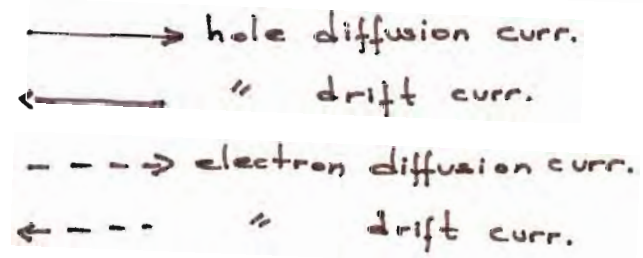 hole diffusion curr.
" drift curr.
electron diffusion curr.
" drift curr.